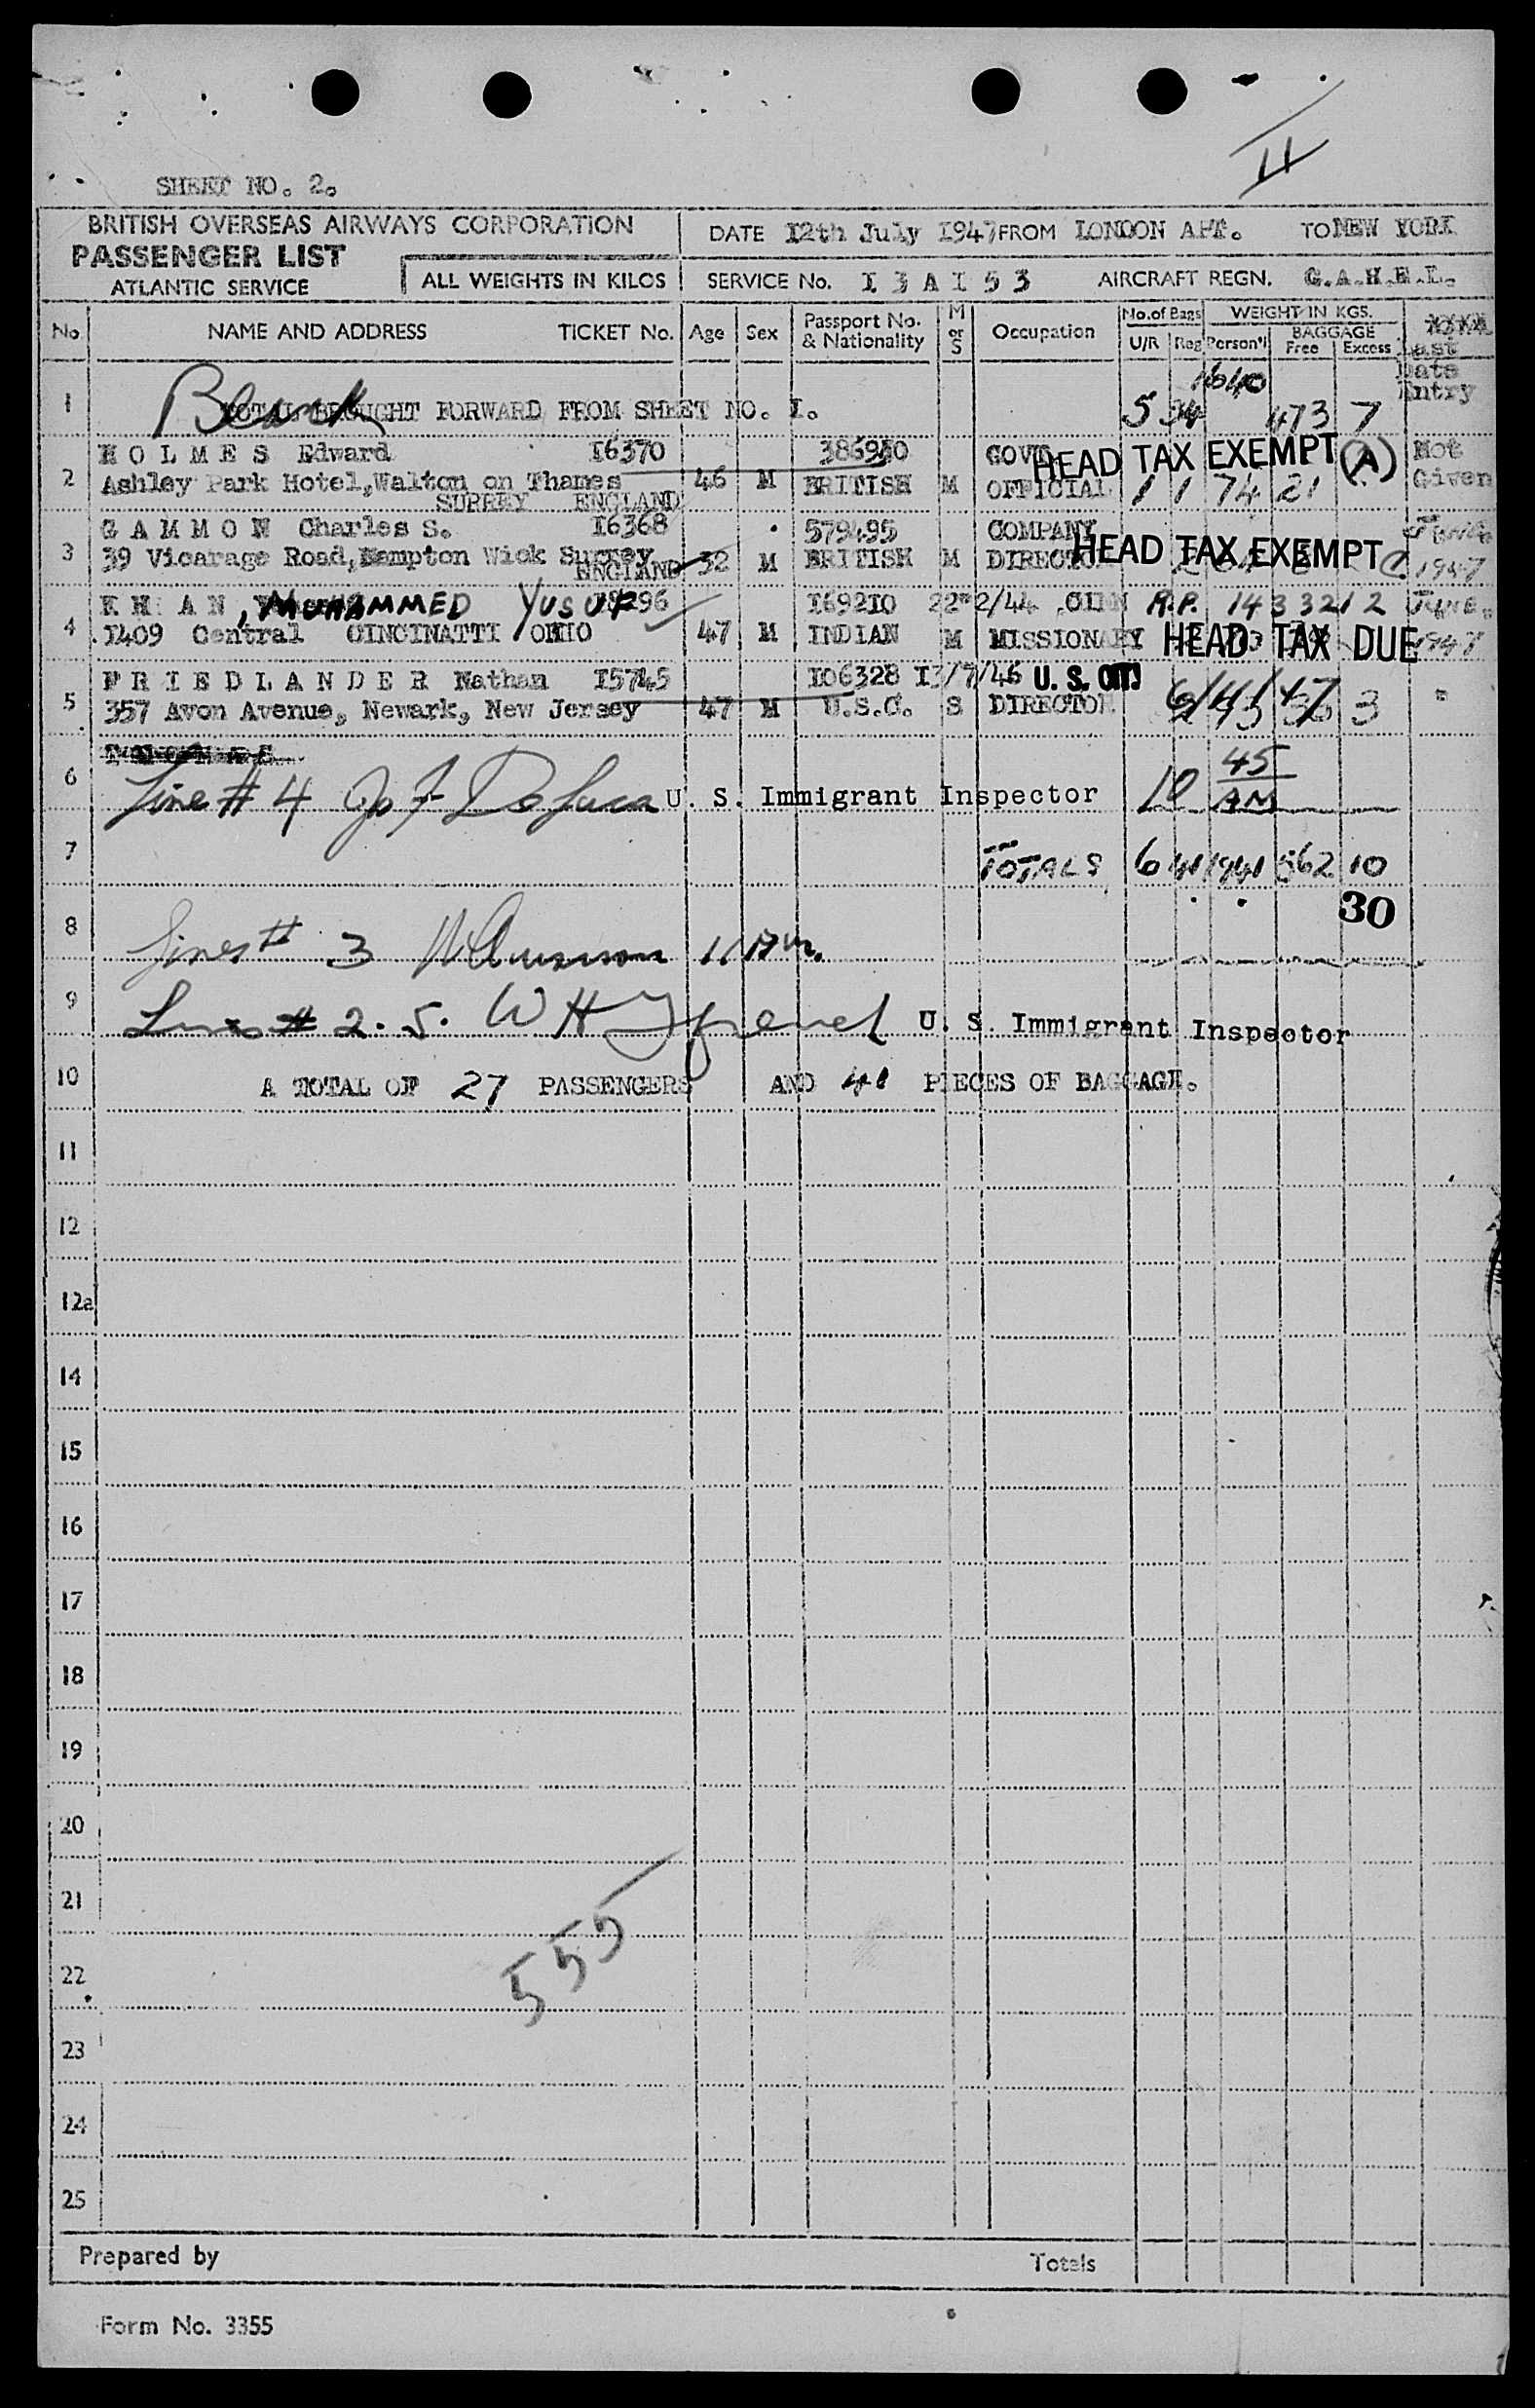 II
SHEET NO. 2.
BRITISH OVERSEAS AIRWAYS CORPORATION
PASSENGER LIST
ATLANTIC SERVICE
ALL WEIGHTS IN KILOS
DATE 12th July 1947 FROM LONDON APT. TO NEW YORK
SERVICE No. I 3 A I 5 3 AIRCRAFT REGN. G.A.H.E.L.
No NAME AND ADDRESS TICKET No. Age Sex Passport No. & Nationality M or S Occupation No. of Bags U/R Reg WEIGHT IN KGS. Person'l BAGGAGE Free Excess Last Date Entry
1 TOTAL BROUGHT FORWARD FROM SHEET NO. I. 5 34 1640 473 7
2 HOLMES Edward I6370 386950 GOVT. HEAD TAX EXEMPT (A) Not
Ashley Park Hotel, Walton on Thames 46 M BRITISH M OFFICIAL 1 1 74 21 Given
SURREY ENGLAND
3 GAMMON Charles S. I6368 579495 COMPANY June
39 Vicarage Road, Hampton Wick Surrey 32 M BRITISH M HEAD TAX EXEMPT 1947
ENGLAND
4 KHAN, MUHAMMED YUSUF 169210 22"2/44 CINN R.P. 1433212 June.
1409 Central CINCINATTI OHIO 47 M INDIAN M MISSIONARY HEAD TAX DUE 1947
5 FRIEDLANDER Nathan I5745 106328 I3/7/46 U. S. CIT.
357 Avon Avenue, Newark, New Jersey 47 M U.S.C. S DIRECTOR 3 "
6 Line # 4 U. S. Immigrant Inspector 10 45 AM
7 TOTALS 6 41 1941 562 10
30
8 Lines # 3 11 Am.
9 Lines # 2. 5. W H U. S. Immigrant Inspector
10 A TOTAL OF 27 PASSENGERS AND 41 PIECES OF BAGGAGE.
11
12
12a
14
15
16
17
18
19
20
21
555
22
23
24
25
Prepared by Totals
Form No. 3355